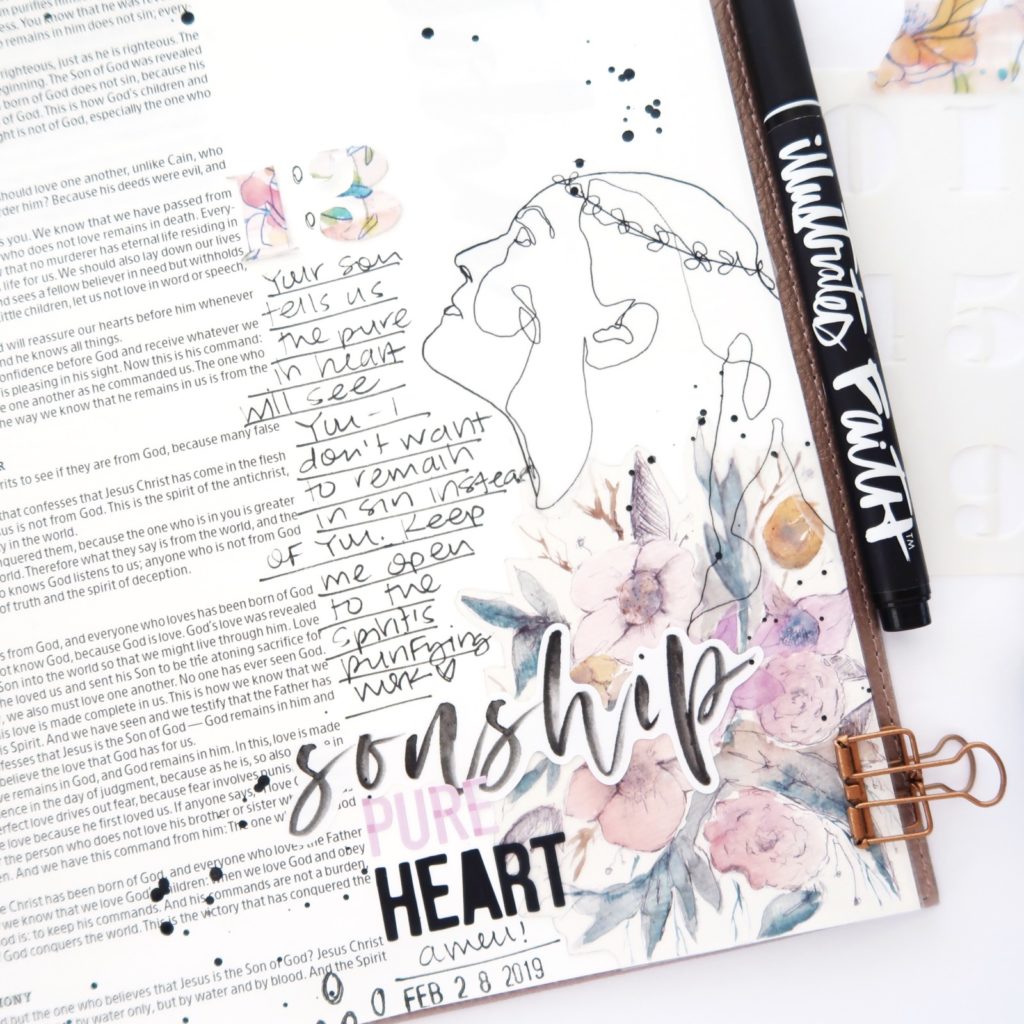 m purifies him
ess. You know that he was
o remains in him does not sin, every-
righteous, just as he is righteous. The
eginning. The Son of God was revealed
born of God does not sin, because his
of God. This is how God's children and
ght is not of God, especially the one who
should love one another, unlike Cain, who
der him? Because his deeds were evil, and
s you. We know that we have passed from
who does not love remains in death. Every-
w that no murderer has eternal life residing in
life for us. We should also lay down our lives
nd sees a fellow believer in need but withholds
ittle children, let us not love in word or speech,
d will reassure our hearts before him whenever
nd he knows all things.
onfidence before God and receive whatever we
is pleasing in his sight. Now this is his command:
e one another as he commanded us. The one who
the way we know that he remains in us is from the
R
rits to see if they are from God, because many false
that confesses that Jesus Christ has come in the flesh
sus is not from God. This is the spirit of the antichrist,
y in the world.
quered them, because the one who is in you is greater
orld. Therefore what they say is from the world, and the
o knows God listens to us; anyone who is not from God
of truth and the spirit of deception.
s from God, and everyone who loves has been born of God
not know God, because God is love. God's love was revealed
Son into the world so that we might live through him. Love
he loved us and sent his Son to be the atoning sacrifice for
, we also must love one another. No one has ever seen God.
his love is made complete in us. This is how we know that we
is Spirit. And we have seen and we testify that the Father has
fesses that Jesus is the Son of God — God remains in him and
believe the love that God has for us.
ve remains in God, and God remains in him. In this, love is made
ence in the day of judgment, because as he is, so also are in
erfect love drives out fear, because fear involves punis
love because he first loved us. If anyone says, "I love
r the person who does not love his brother or sister
en. And we have this command from him: The one
e Christ has been born of God, and everyone who loves the Father
we know that we love God's children: when we love God and obey
od is: to keep his commands. And his commands are not a burden,
f God conquers the world. This is the victory that has conquered the
d but the one who believes that Jesus is the Son of God? Jesus Christ
MONY
by water only, but by water and by blood. And the Spirit
1:8
Your son
tells us
the pure
in heart
will see
You - I
don't want
to remain
in sin instead
of You. Keep
me open
to the
spirit's
purifying
work
sonship
PURE
HEART
amen!
FEB 28 2019
illustrated Faith™
0 1
4 5
9